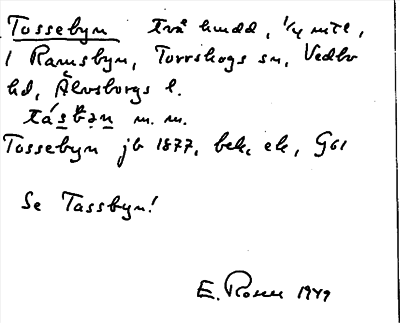 Tossebyn två hmdd, 1/4 mtl,
i Ramsbyn, Torrskogs sn, Vedbo
hd, Älvsborgs l.
tásbən m. m.
Tossebyn jb 1877, bek, ek, G61
Se Tassbyn!
E. Rosell 1949